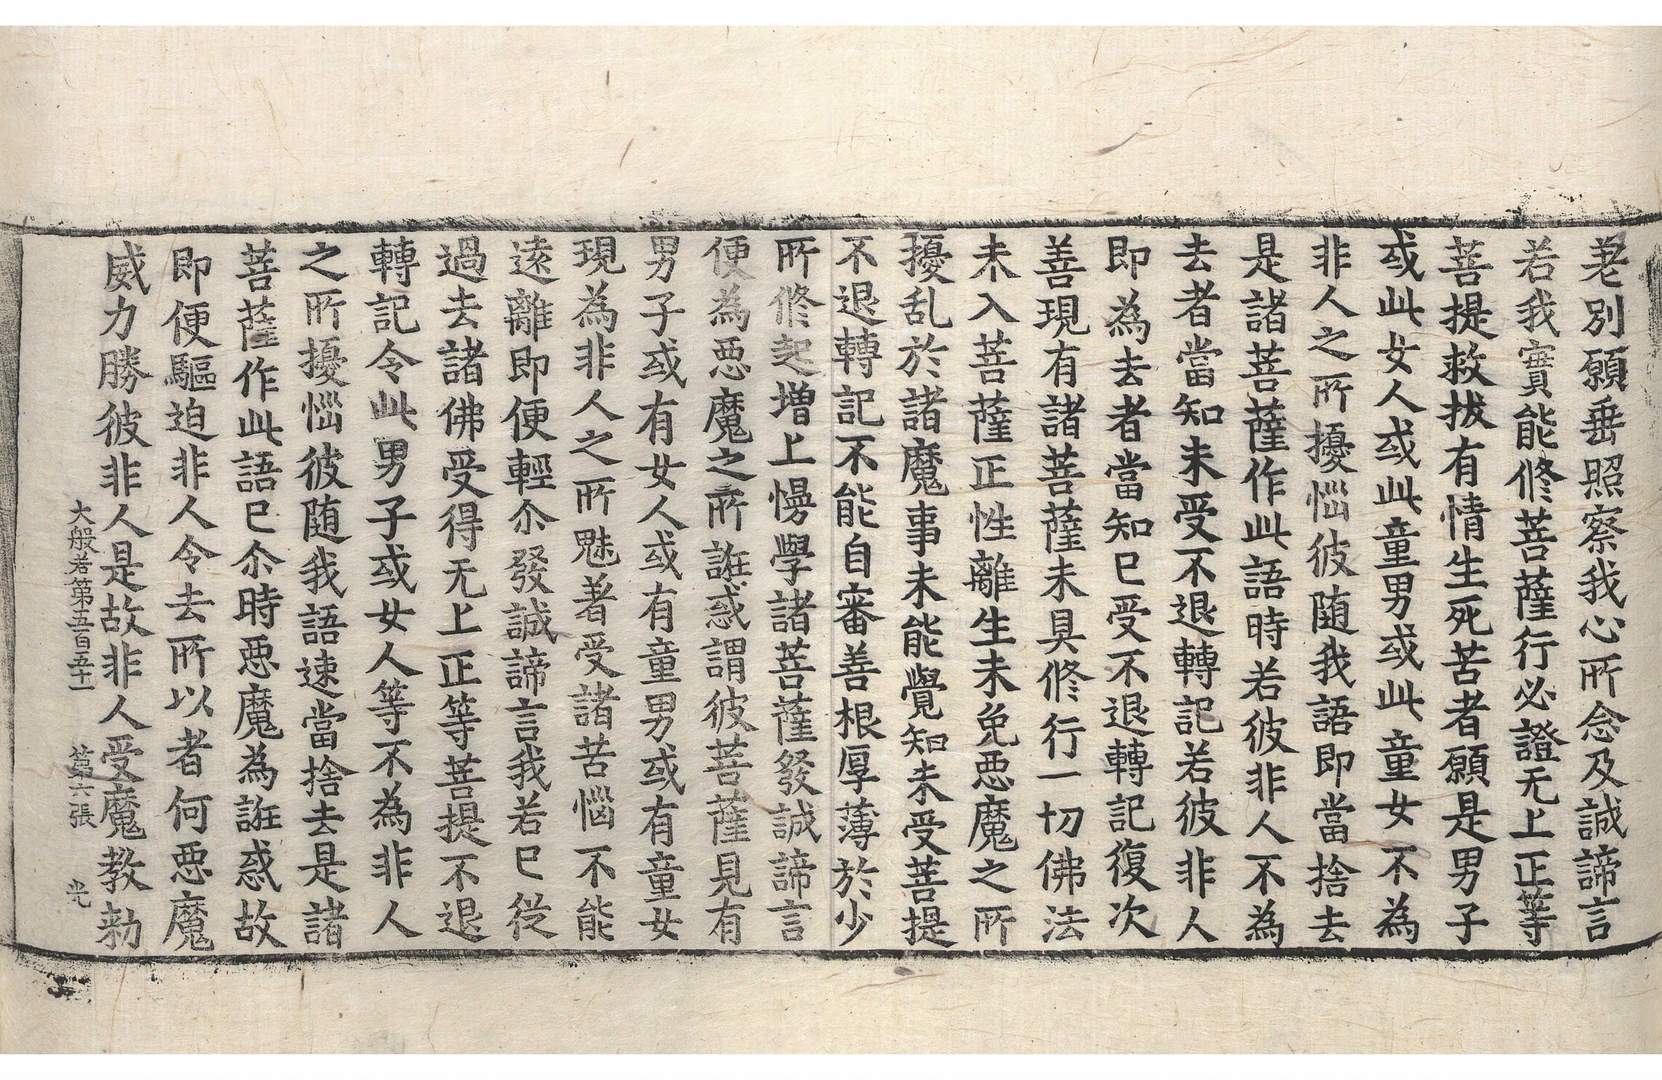 差別願垂照察我心所念及誠諦言
若我實能修菩薩行必證无上正等
菩提救拔有情生死苦者願是男子
或此女人或此童男或此童女不為
非人之所擾惱彼随我語即當捨去
是諸菩薩作此語時若彼非人不為
去者當知未受不退轉記若彼非人
即為去者當知已受不退轉記復次
善現有諸菩薩未具修行一切佛法
未入菩薩正性離生未免惡魔之所
擾乱於諸魔事未能覺知未受菩提
不退轉記不能自審善根厚薄於少
所修起增上慢學諸菩薩發誠諦言
便為惡魔之所誑惑謂彼菩薩見有
男子或有女人或有童男或有童女
現為非人之所魅著受諸苦惱不能
遠離即便輕尒發誠諦言我若已從
過去諸佛受得无上正等菩提不退
轉記令此男子或女人等不為非人
之所擾惱彼随我語速當捨去是諸
菩薩作此語已尒時惡魔為誑惑故
即便驅迫非人令去所以者何惡魔
威力勝彼非人是故非人受魔教勑
大般若第五百五十一 第六張 光